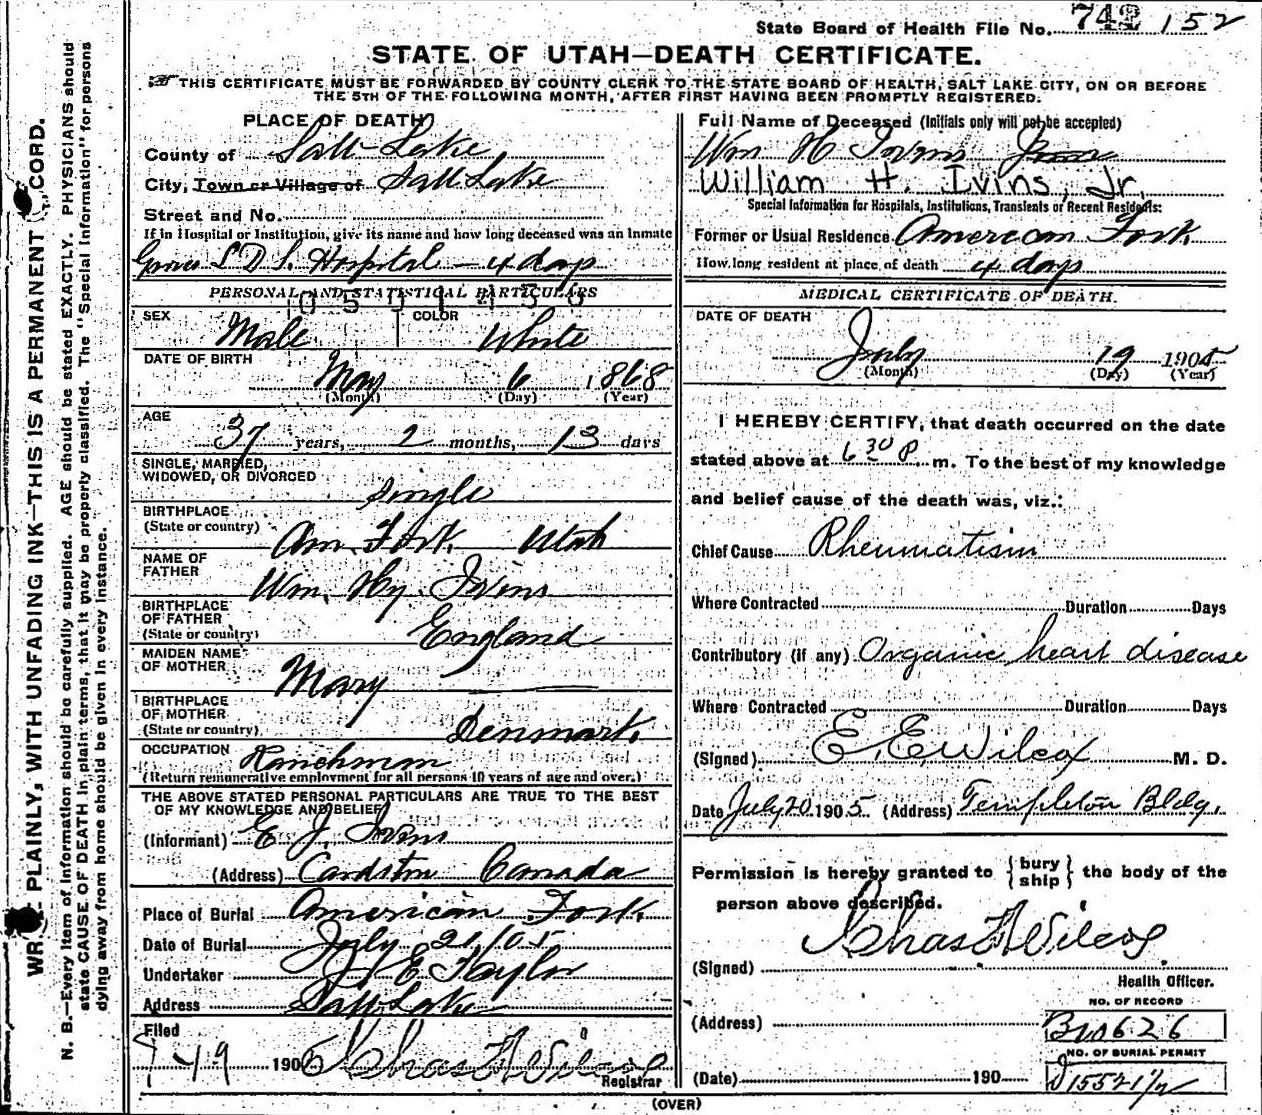 State Board of Health File No. 742 152
STATE OF UTAH—DEATH CERTIFICATE.
THIS CERTIFICATE MUST BE FORWARDED BY COUNTY CLERK TO THE STATE BOARD OF HEALTH, SALT LAKE CITY, ON OR BEFORE
THE 5TH OF THE FOLLOWING MONTH, AFTER FIRST HAVING BEEN PROMPTLY REGISTERED.
WR PLAINLY, WITH UNFADING INK—THIS IS A PERMANENT CORD.
N. B.—Every item of Information should be carefully supplied. AGE should be stated EXACTLY. PHYSICIANS should
state CAUSE OF DEATH in plain terms, that it may be properly classified. The "Special Information" for persons
dying away from home should be given in every instance.
PLACE OF DEATH
County of Salt Lake
City, Town or Village of Salt Lake
Street and No.
If in Hospital or Institution, give its name and how long deceased was an inmate
L D S. Hospital — 4 days
PERSONAL AND STATISTICAL PARTICULARS
SEX Male COLOR White
DATE OF BIRTH
May 6 1868
(Month) (Day) (Year)
AGE
37 years, 2 months, 13 days
SINGLE, MARRIED,
WIDOWED, OR DIVORCED
Single
BIRTHPLACE
(State or country) Am. Fork. Utah
NAME OF
FATHER Wm. Hy. Ivins
BIRTHPLACE
OF FATHER
(State or country) England
MAIDEN NAME
OF MOTHER Mary
BIRTHPLACE
OF MOTHER
(State or country) Denmark.
OCCUPATION Ranchman
(Return remunerative employment for all persons 10 years of age and over.)
THE ABOVE STATED PERSONAL PARTICULARS ARE TRUE TO THE BEST
OF MY KNOWLEDGE AND BELIEF
(Informant) E. J. Ivins
(Address) Cardston Canada
Place of Burial American Fork.
Date of Burial July 21/05
Undertaker J. E. Taylor
Address Salt Lake
Filed
7-19 1905 Chas F Wilcox
Registrar
Full Name of Deceased (Initials only will not be accepted)
Wm H Ivins
William H. Ivins, Jr.
Special Information for Hospitals, Institutions, Transients or Recent Residents:
Former or Usual Residence American Fork.
How long resident at place of death 4 days
MEDICAL CERTIFICATE OF DEATH.
DATE OF DEATH
July 19 1905
(Month) (Day) (Year)
I HEREBY CERTIFY, that death occurred on the date
stated above at 6 30 P. m. To the best of my knowledge
and belief cause of the death was, viz.:
Chief Cause Rheumatism
Where Contracted Duration Days
Contributory (if any) Organic heart disease
Where Contracted Duration Days
(Signed) E. E Wilcox M. D.
Date July 20 1905. (Address) Templeton Bldg.
Permission is hereby granted to { bury ship } the body of the
person above described.
(Signed) Chas F Wilcox
Health Officer.
(Address)
NO. OF RECORD
B10626
NO. OF BURIAL PERMIT
(Date) 190 D 15521 1/2
(OVER)